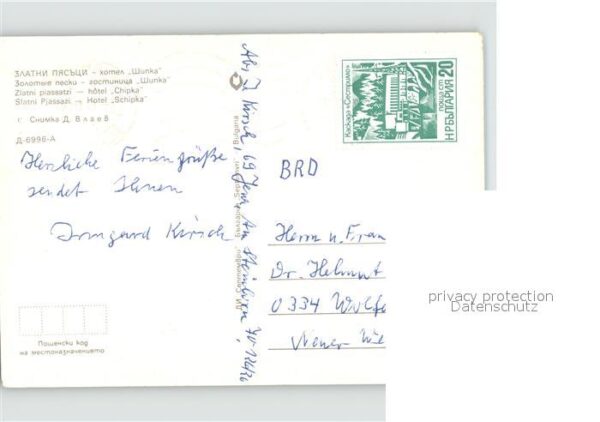 ЗЛАТНИ ПЯСЪЦИ – хотел „Шипка"
Золотые пески – гостиница „Шипка"
Zlatni piassatzi — hôtel „Chipka"
Slatni Pjassazi — Hotel „Schipka"
Снимка Д. Влаев
Д-6996-А
Herzliche Feriengrüße
sendet Ihnen
Irmgard Kirsch
Пощенски код
на местоназначението
Abs. I. Kirsch, 69 Jena, Am
България" Bulgaria
Каскада «Сестримо»
поща ст 20
НР БЪЛГАРИЯ
BRD
Herrn u. Frau
Dr. Helmut
0334 Wolfe
privacy protection
Datenschutz